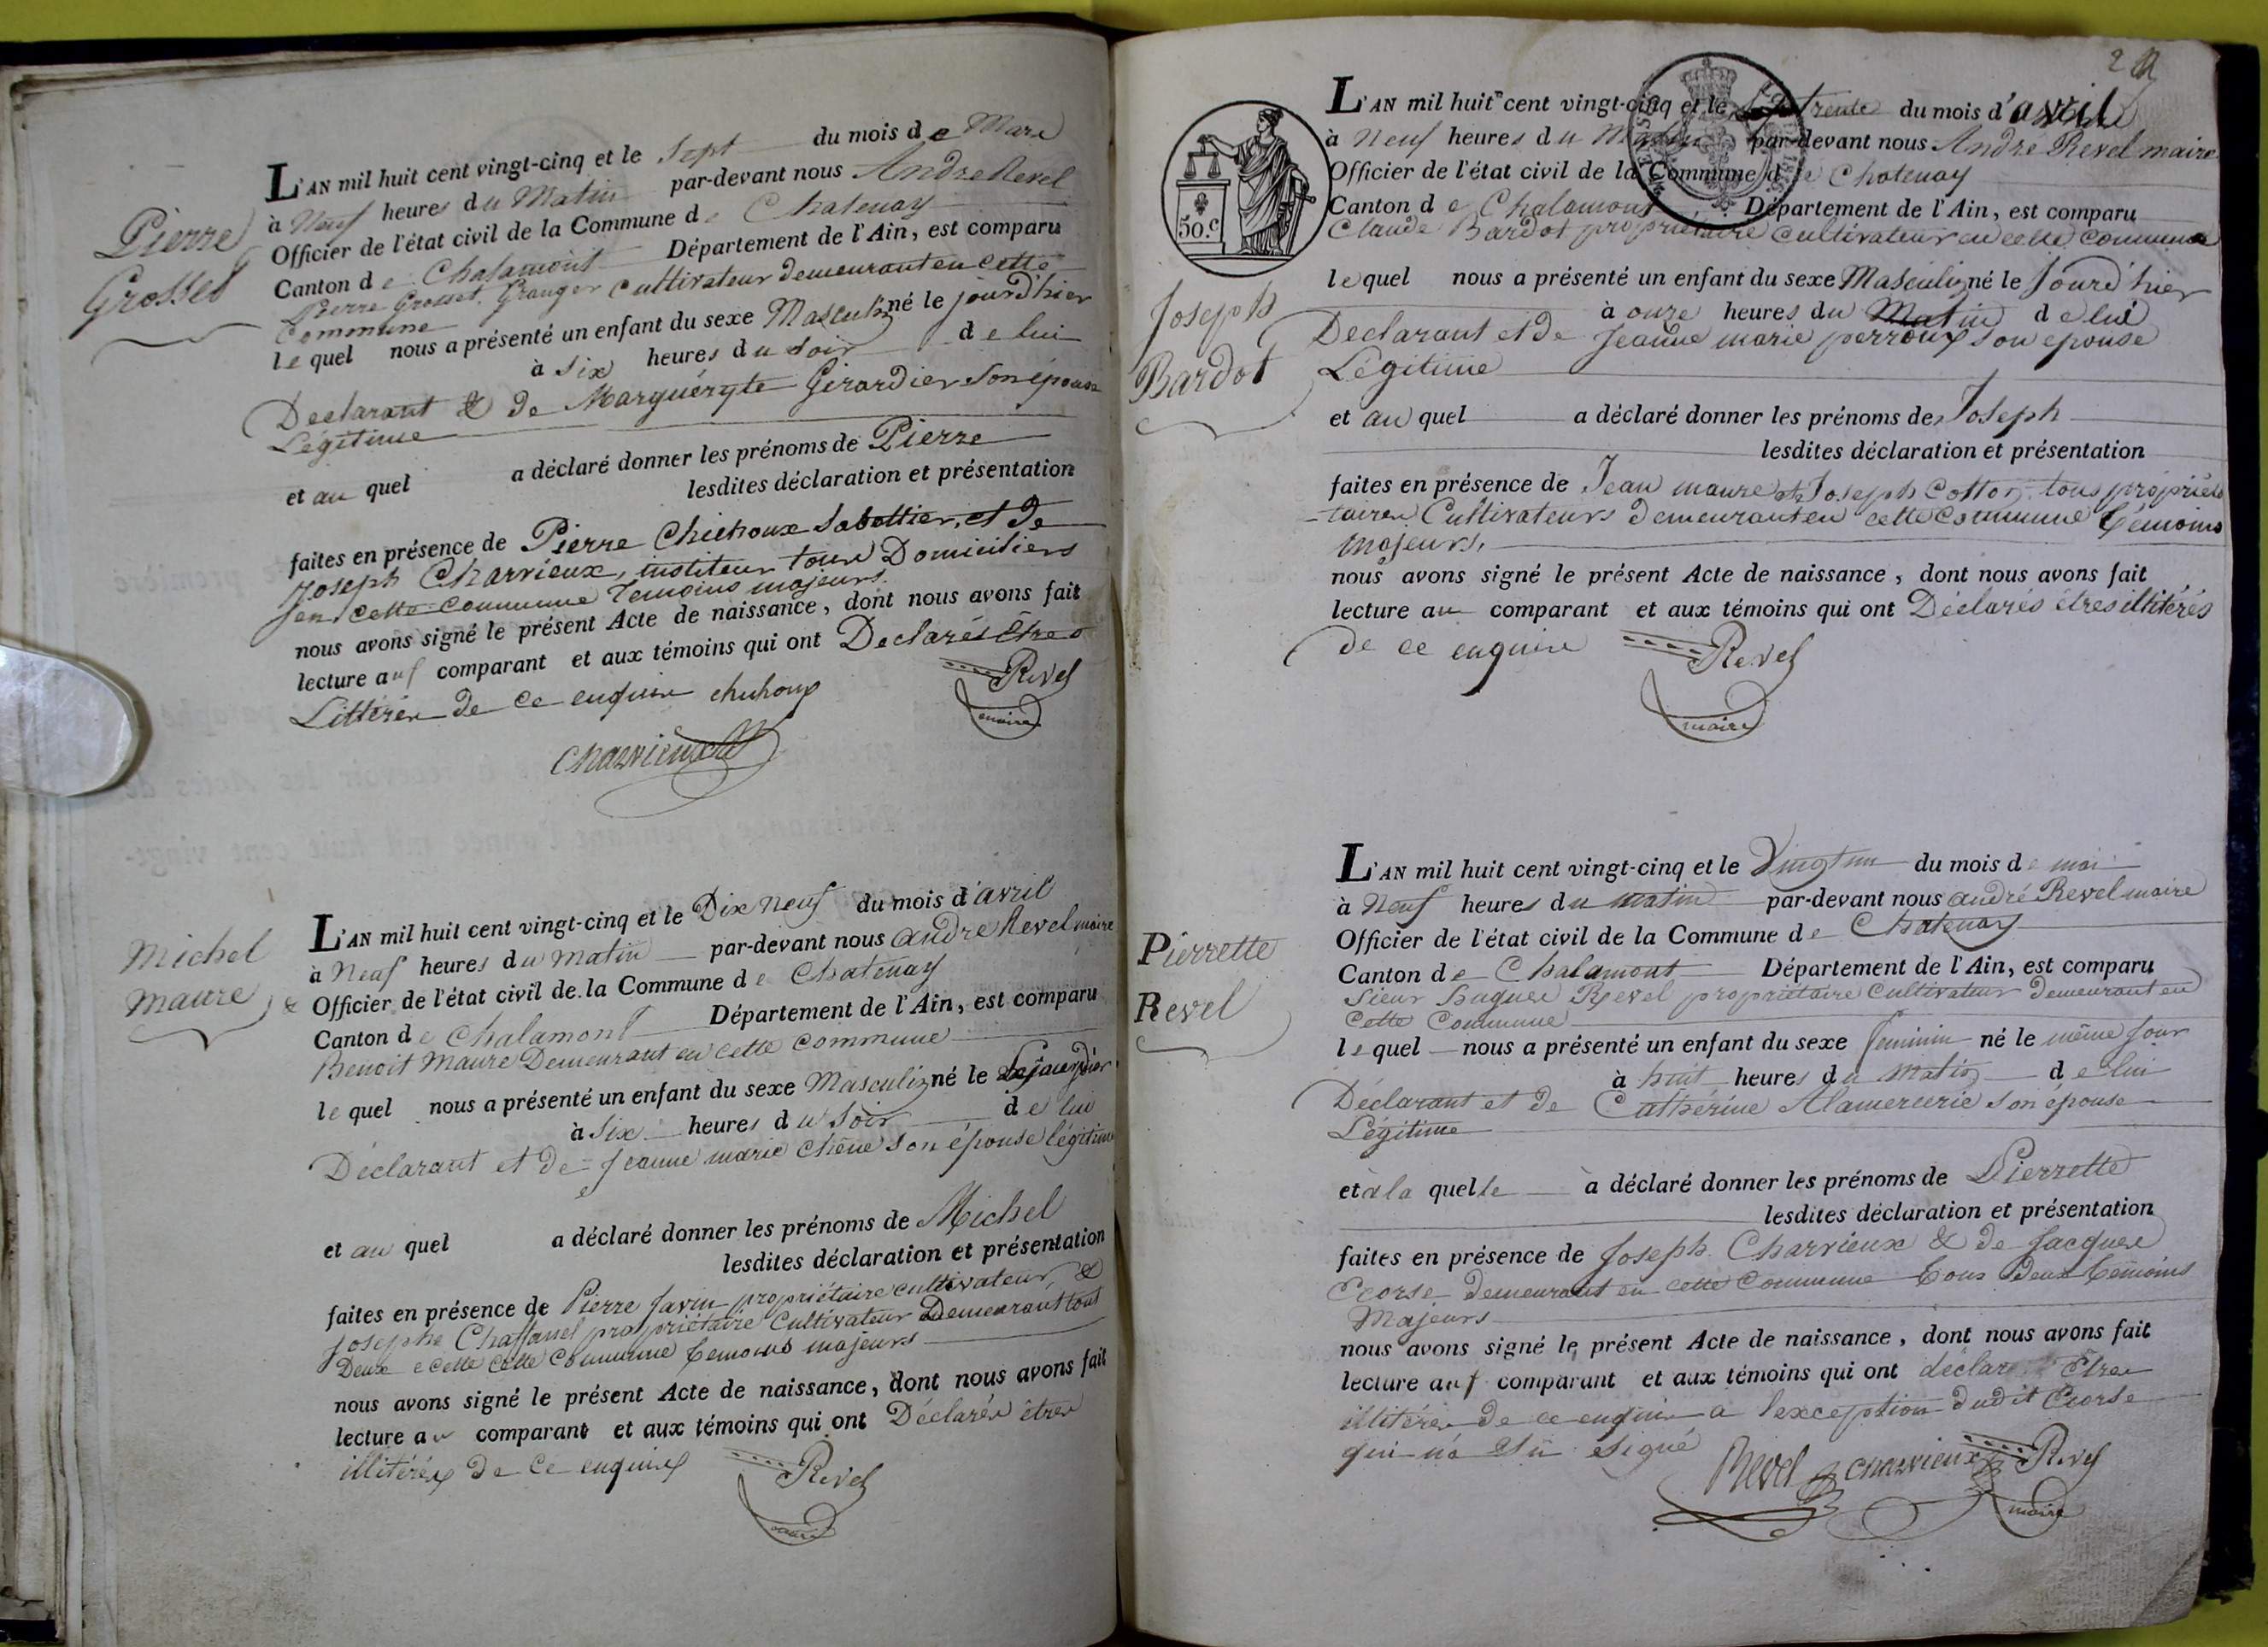 Pierre
Grosset
L'AN mil huit cent vingt-cinq et le Sept du mois de Mars
à Neuf heures du Matin par-devant nous André Revel
Officier de l'état civil de la Commune de Chatenay
Canton de Chalamont Département de l'Ain, est comparu
Pierre Grosset, Granger Cultivateur demeurant en cette
Commune
lequel nous a présenté un enfant du sexe Masculin né le jourd'hier
à six heures du soir de lui
Déclarant & de Marguéryte Girardier son épouse
Légitime
et au quel a déclaré donner les prénoms de Pierre
lesdites déclaration et présentation
faites en présence de Pierre Chichoux Sabottier, et de
Joseph Charvieux, instituteur tous Domiciliers
en cette commune Témoins majeurs.
nous avons signé le présent Acte de naissance, dont nous avons fait
lecture auf comparant et aux témoins qui ont Declarés être
Littérés de ce enquis chichoux
Revel
maire
Charvieux
Michel
Maure
L'AN mil huit cent vingt-cinq et le Dix Neuf du mois d'avril
à Neuf heures du matin par-devant nous André Revel maire
Officier de l'état civil de la Commune de Chatenay
Canton de Chalamont Département de l'Ain, est comparu
Benoit Maure Demeurant en cette Commune
lequel nous a présenté un enfant du sexe Masculin né le jourd'hier
à six heures du soir de lui
Déclarant et de Jeanne marie Chêne son épouse légitime
et au quel a déclaré donner les prénoms de Michel
lesdites déclaration et présentation
faites en présence de Pierre Javin propriétaire cultivateur, &
Josephe Chaffanel propriétaire Cultivateur Demeurant tout
Deux e cette cette Commune témoins majeurs
nous avons signé le présent Acte de naissance, dont nous avons fait
lecture au comparant et aux témoins qui ont Déclarés êtres
illitérés de ce enquis
Revel
maire
2
50.c
Joseph
Bardot
L'AN mil huit cent vingt-cinq et le trente du mois d'avril
à Neuf heures du Matin par-devant nous André Revel maire
Officier de l'état civil de la Commune de Chatenay
Canton de Chalamont Département de l'Ain, est comparu
Claude Bardot propriétaire cultivateur en cette commune
lequel nous a présenté un enfant du sexe Masculin né le Jourd'hier
à onze heures du Matin de lui
Déclarant et de Jeanne marie perroux son épouse
Légitime
et au quel a déclaré donner les prénoms de Joseph
lesdites déclaration et présentation
faites en présence de Jean maure et Joseph Cottor, tous proprié
-taires Cultivateurs demeurant en cette Commune témoins
majeurs,
nous avons signé le présent Acte de naissance, dont nous avons fait
lecture au comparant et aux témoins qui ont Déclarés êtres illitérés
de ce enquis
Revel
maire
Pierrette
Revel
L'AN mil huit cent vingt-cinq et le Vingt un du mois de mai
à Neuf heures du matin par-devant nous andré Revel maire
Officier de l'état civil de la Commune de Chatenay
Canton de Chalamont Département de l'Ain, est comparu
Sieur hugues Revel propriétaire Cultivateur demeurant en
cette Commune
lequel nous a présenté un enfant du sexe feminin né le même jour
à huit heures du matin de lui
Déclarant et de Cathérine Alamercerie son épouse
Légitime
et à la quelle à déclaré donner les prénoms de Pierrette
lesdites déclaration et présentation
faites en présence de Joseph Charvieux & de Jacques
Ecorse demeurant en cette Commune tous deux témoins
Majeurs
nous avons signé le présent Acte de naissance, dont nous avons fait
lecture auf comparant et aux témoins qui ont déclaré Etres
illitérés de ce enquis a l'exception dudit Ecorse
qui n'a Sû signé
Revel charvieux Revel
maire